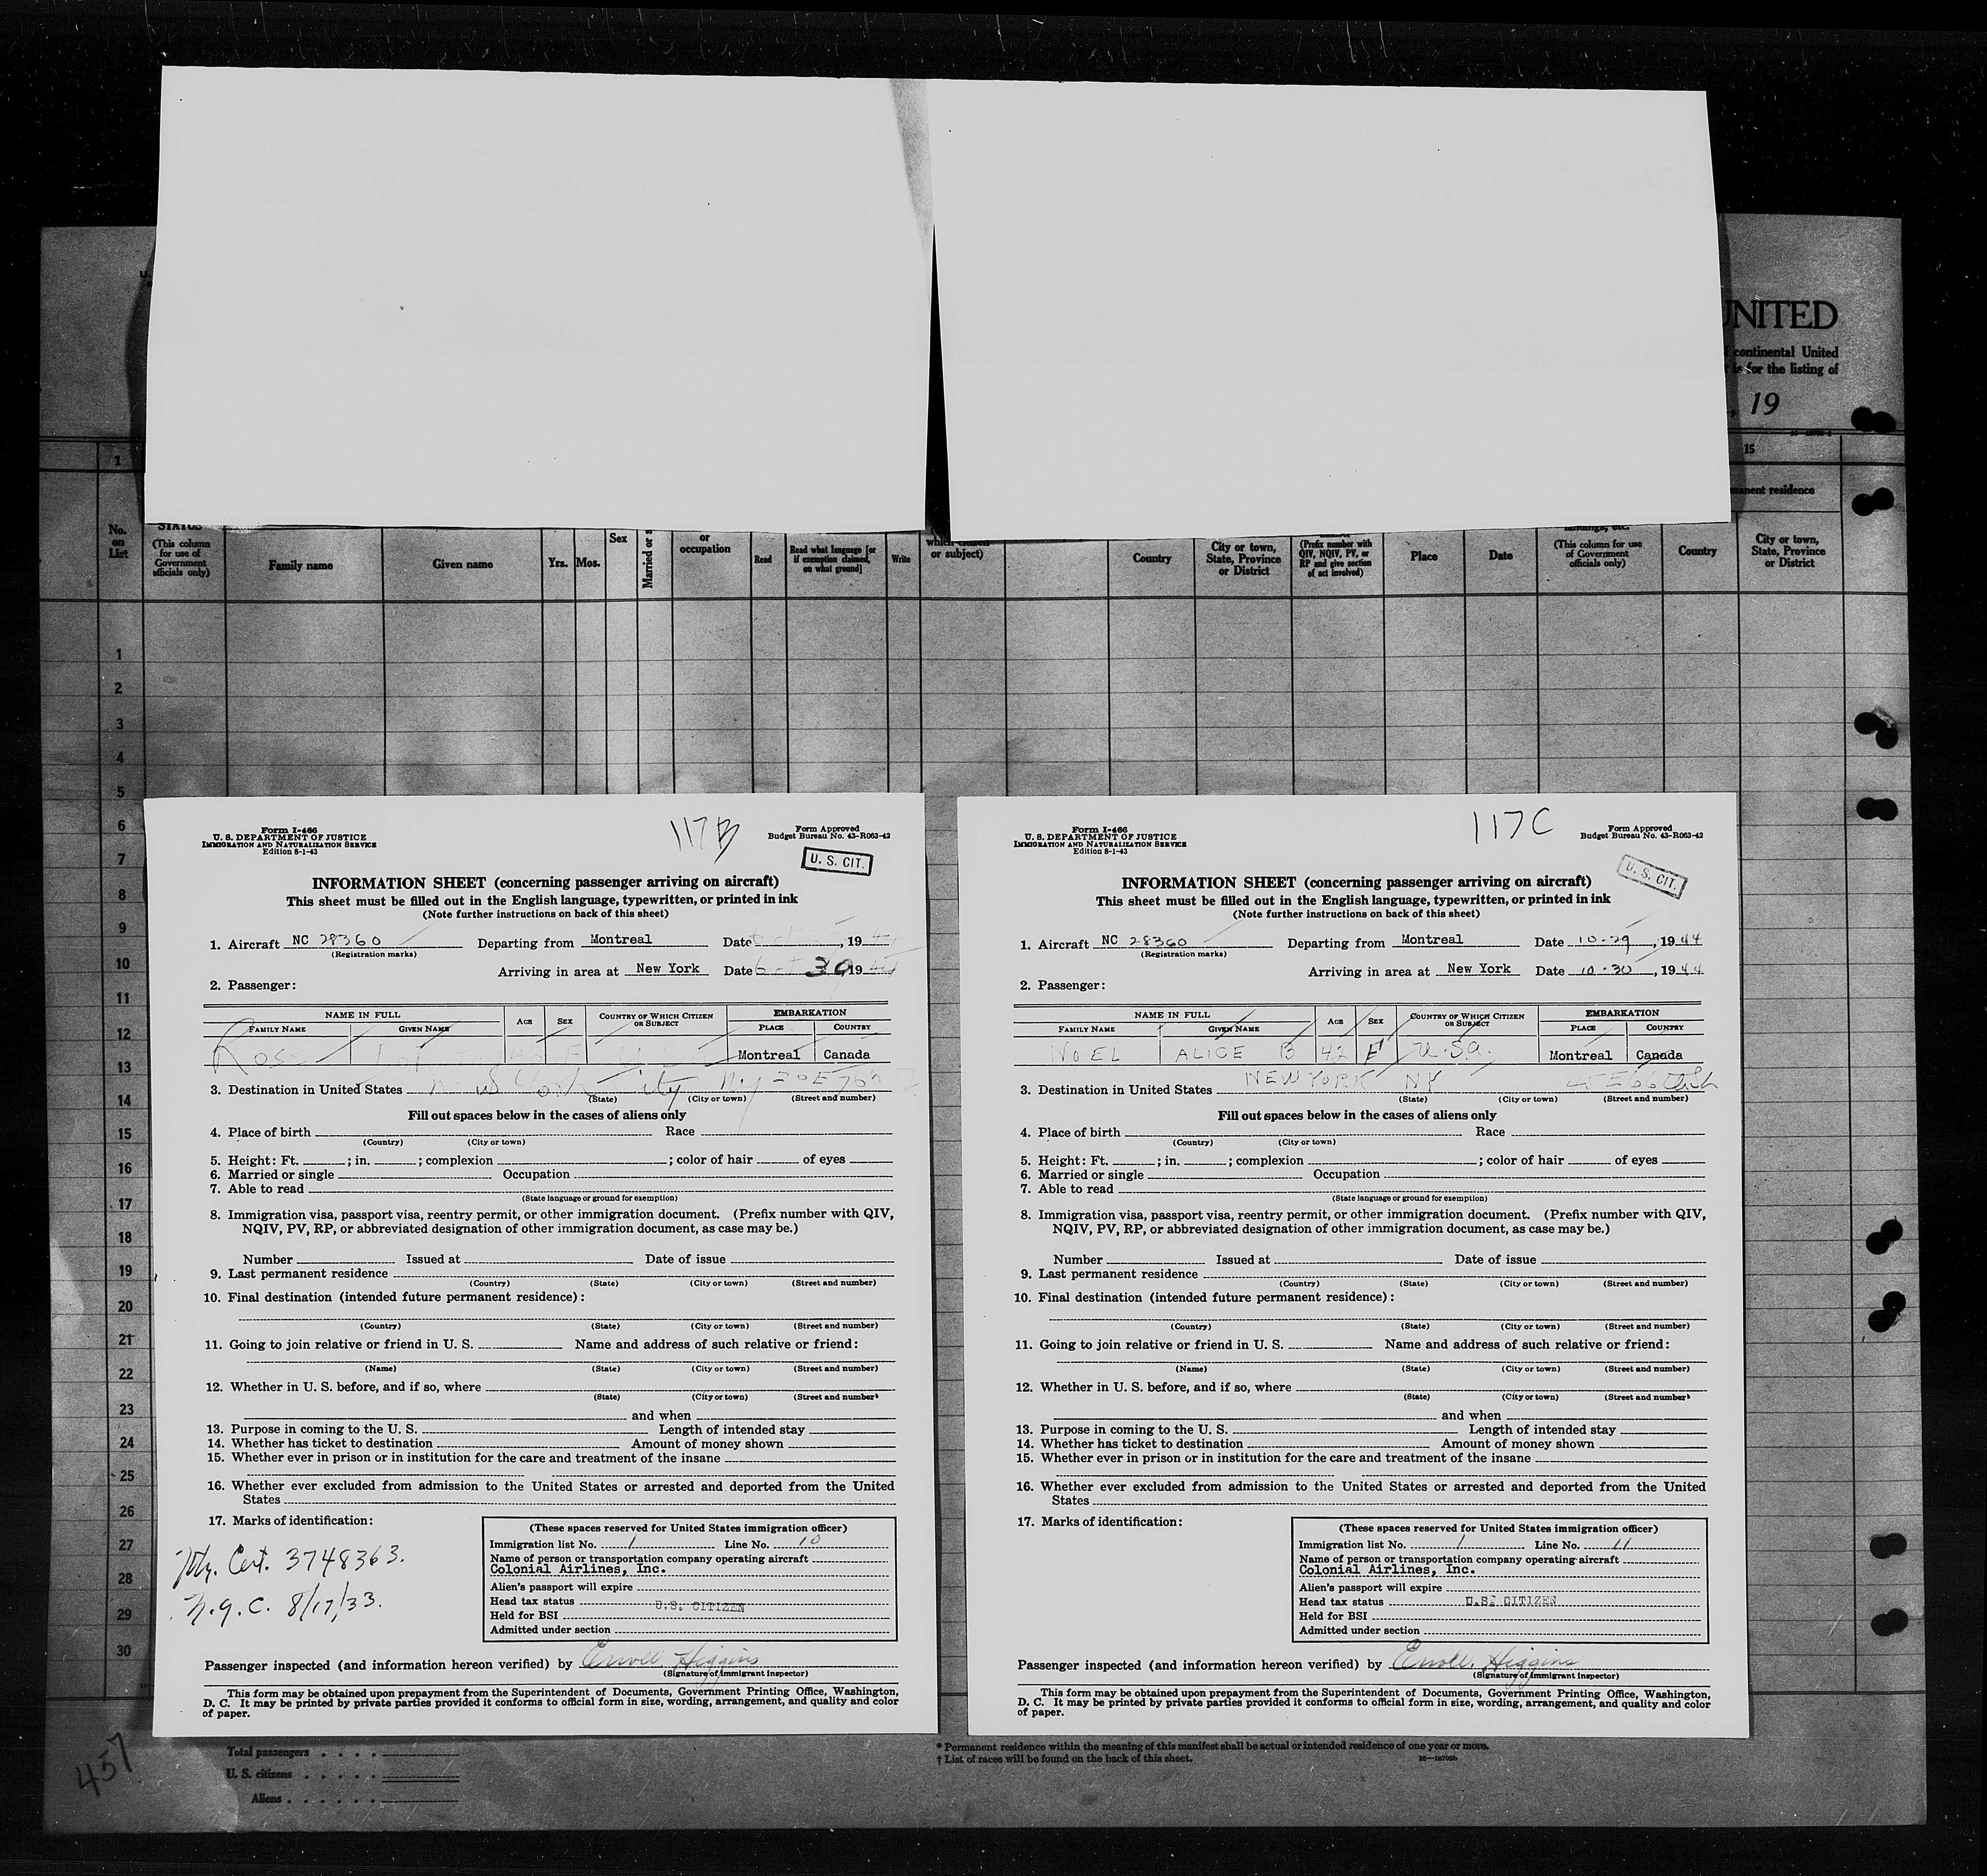 UNITED
continental United
is for the listing of
, 19
1
15
permanent residence
No. on List
STATUS (This column for use of Government officials only)
Family name
Given name
Yrs.
Mos.
Sex
Married or s
or occupation
Read
Read what language [or if exemption claimed, on what ground]
Write
which citizen or subject)
Country
City or town, State, Province or District
(Prefix number with QIV, NQIV, PV, or RP and give section of act involved)
Place
Date
landings, etc. (This column for use of Government officials only)
Country
City or town, State, Province or District
1
2
3
4
5
6
7
8
9
10
11
12
13
14
15
16
17
18
19
20
21
22
23
24
25
26
27
28
29
30
Form I-466
U. S. DEPARTMENT OF JUSTICE
IMMIGRATION AND NATURALIZATION SERVICE
Edition 8-1-43
117B
Form Approved
Budget Bureau No. 43-R063-42
U. S. CIT.
INFORMATION SHEET (concerning passenger arriving on aircraft)
This sheet must be filled out in the English language, typewritten, or printed in ink
(Note further instructions on back of this sheet)
1. Aircraft NC 28360 Departing from Montreal Date Oct , 19 44
(Registration marks)
Arriving in area at New York Date Oct 30 19 44
2. Passenger:
NAME IN FULL AGE SEX COUNTRY OF WHICH CITIZEN OR SUBJECT EMBARKATION
FAMILY NAME GIVEN NAME PLACE COUNTRY
Ross F Montreal Canada
3. Destination in United States New York City N.Y 20 E 76
(State) (City or town) (Street and number)
Fill out spaces below in the cases of aliens only
4. Place of birth Race
(Country) (City or town)
5. Height: Ft. ; in. ; complexion ; color of hair of eyes
6. Married or single Occupation
7. Able to read
(State language or ground for exemption)
8. Immigration visa, passport visa, reentry permit, or other immigration document. (Prefix number with QIV,
NQIV, PV, RP, or abbreviated designation of other immigration document, as case may be.)
Number Issued at Date of issue
9. Last permanent residence
(Country) (State) (City or town) (Street and number)
10. Final destination (intended future permanent residence):
(Country) (State) (City or town) (Street and number)
11. Going to join relative or friend in U. S. Name and address of such relative or friend:
(Name) (State) (City or town) (Street and number)
12. Whether in U. S. before, and if so, where
(State) (City or town) (Street and number)
and when
13. Purpose in coming to the U. S. Length of intended stay
14. Whether has ticket to destination Amount of money shown
15. Whether ever in prison or in institution for the care and treatment of the insane
16. Whether ever excluded from admission to the United States or arrested and deported from the United
States
17. Marks of identification:
Cert. 3748363.
N.Y.C. 8/17/33.
(These spaces reserved for United States immigration officer)
Immigration list No. 1 Line No. 10
Name of person or transportation company operating aircraft
Colonial Airlines, Inc.
Alien's passport will expire
Head tax status U.S. CITIZEN
Held for BSI
Admitted under section
Passenger inspected (and information hereon verified) by Erroll Higgins
(Signature of Immigrant Inspector)
This form may be obtained upon prepayment from the Superintendent of Documents, Government Printing Office, Washington,
D. C. It may be printed by private parties provided it conforms to official form in size, wording, arrangement, and quality and color
of paper.
Form I-466
U. S. DEPARTMENT OF JUSTICE
IMMIGRATION AND NATURALIZATION SERVICE
Edition 8-1-43
117C
Form Approved
Budget Bureau No. 43-R063-42
U. S. CIT.
INFORMATION SHEET (concerning passenger arriving on aircraft)
This sheet must be filled out in the English language, typewritten, or printed in ink
(Note further instructions on back of this sheet)
1. Aircraft NC 28360 Departing from Montreal Date 10-29, 19 44
(Registration marks)
Arriving in area at New York Date 10-30, 19 44
2. Passenger:
NAME IN FULL AGE SEX COUNTRY OF WHICH CITIZEN OR SUBJECT EMBARKATION
FAMILY NAME GIVEN NAME PLACE COUNTRY
NOEL ALICE B 42 F U.S.A. Montreal Canada
3. Destination in United States NEW YORK NY E 66
(State) (City or town) (Street and number)
Fill out spaces below in the cases of aliens only
4. Place of birth Race
(Country) (City or town)
5. Height: Ft. ; in. ; complexion ; color of hair of eyes
6. Married or single Occupation
7. Able to read
(State language or ground for exemption)
8. Immigration visa, passport visa, reentry permit, or other immigration document. (Prefix number with QIV,
NQIV, PV, RP, or abbreviated designation of other immigration document, as case may be.)
Number Issued at Date of issue
9. Last permanent residence
(Country) (State) (City or town) (Street and number)
10. Final destination (intended future permanent residence):
(Country) (State) (City or town) (Street and number)
11. Going to join relative or friend in U. S. Name and address of such relative or friend:
(Name) (State) (City or town) (Street and number)
12. Whether in U. S. before, and if so, where
(State) (City or town) (Street and number)
and when
13. Purpose in coming to the U. S. Length of intended stay
14. Whether has ticket to destination Amount of money shown
15. Whether ever in prison or in institution for the care and treatment of the insane
16. Whether ever excluded from admission to the United States or arrested and deported from the United
States
17. Marks of identification:
(These spaces reserved for United States immigration officer)
Immigration list No. 1 Line No. 11
Name of person or transportation company operating aircraft
Colonial Airlines, Inc.
Alien's passport will expire
Head tax status U.S. CITIZEN
Held for BSI
Admitted under section
Passenger inspected (and information hereon verified) by Erroll Higgins
(Signature of Immigrant Inspector)
This form may be obtained upon prepayment from the Superintendent of Documents, Government Printing Office, Washington,
D. C. It may be printed by private parties provided it conforms to official form in size, wording, arrangement, and quality and color
of paper.
457
Total passengers . . . .
U. S. citizens . . . . .
Aliens . . . . . .
* Permanent residence within the meaning of this manifest shall be actual or intended residence of one year or more.
† List of races will be found on the back of this sheet.